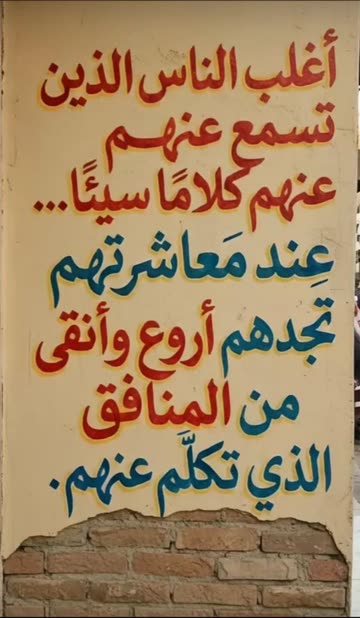 أغلب الناس الذين
تسمع عنهم
عنهم كلامًا سيئًا...
عِند مَعاشرتهم
تجدهم أروع وأنقى
من المنافق
الذي تكلَّم عنهم.